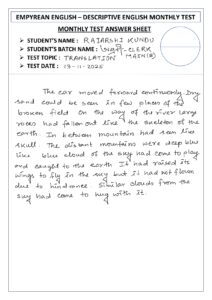 EMPYREAN ENGLISH – DESCRIPTIVE ENGLISH MONTHLY TEST
MONTHLY TEST ANSWER SHEET
➢ STUDENT'S NAME : RAJARSHI KUNDU
➢ STUDENT'S BATCH NAME : WBPSC-CLERK
➢ TEST TOPIC : TRANSLATION MAIN(B)
➢ TEST DATE : 23-11-2025
The car moved forward continuously. Dry
sand could be seen in few places of the
broken field. On the way of the river large
trees had fallen out like the skeleton of the
earth. In between mountain had seen like
skull. The distant mountains were deep blue
like blue cloud of the sky had come to play
and caught to the earth. It had raised its
wings to fly in the sky but it had not flown
due to hindrance. Similar clouds from the
sky had come to hug with it.